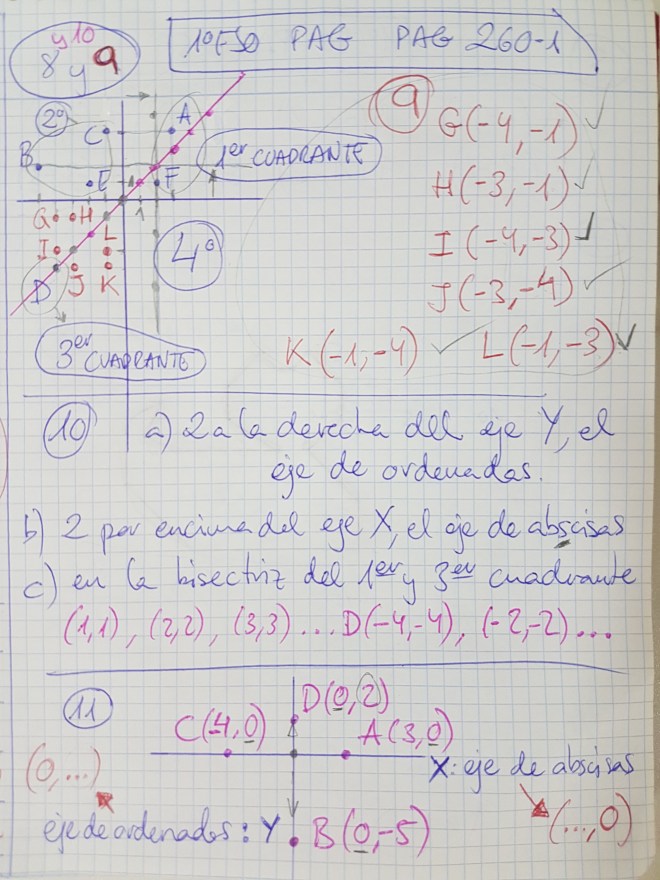 y10
8 y 9
1º ESO PAG PAG 260-1
2º
C
A
B
E
F
1er CUADRANTE
1
1
G H
I L
D J K
4º
3er CUADRANTE
9
G(-4,-1)
H(-3,-1)
I(-4,-3)
J(-3,-4)
K(-1,-4) L(-1,-3)
10 a) 2 a la derecha del eje Y, el
eje de ordenadas.
b) 2 por encima del eje X, el eje de abscisas
c) en la bisectriz del 1er y 3er cuadrante
(1,1), (2,2), (3,3)...D(-4,-4), (-2,-2)...
11
D(0,2)
C(-4,0) A(3,0)
(0,...)
X: eje de abscisas
eje de ordenadas: Y B(0,-5) (...,0)